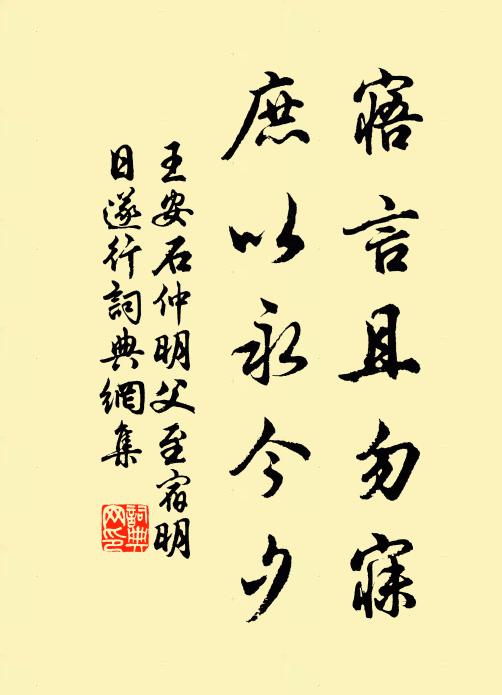 寤言且勿寐
庶以永今夕
王安石仲明父至宿明
日遂行詞典網集
詞典
网印